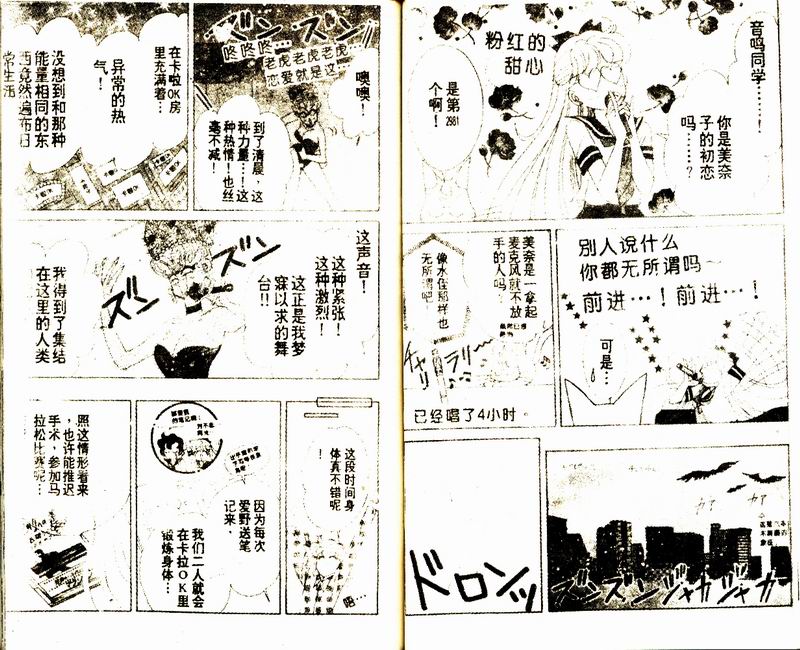 音鸣同学……！
你是美奈
子的初恋
吗……？
粉红的
甜心
是第
2981
个啊！
别人说什么
你都无所谓吗～
前进…！前进…！
可是…
美奈是一拿起
麦克风就不放
手的人吗：
像水住那样也
无所谓吧
チャリ
ラリー
已经唱了4小时。
ズンズンジャカジャカ
ドロンッ
ズン ズン
咚咚咚…
老虎老虎老虎
恋爱就是这…
噢噢！
到了清晨，这
种力量…！这
种热情！也丝
毫不减！
在卡啦OK房
里充满着…
异常的热
气！
没想到和那种
能量相同的东
西竟然遍布日
常生活
这声音！
这种紧张！
这种激烈！
这正是我梦
寐以求的舞
台!!
ズン
ズン
我得到了集结
在这里的人类
这段时间身
体真不错呢
！
唔…
因为每次
爱野送笔
记来，
我们二人就会
在卡拉OK里
锻炼身体…
照这情形看来
，也许能推迟
手术，参加马
拉松比赛呢…